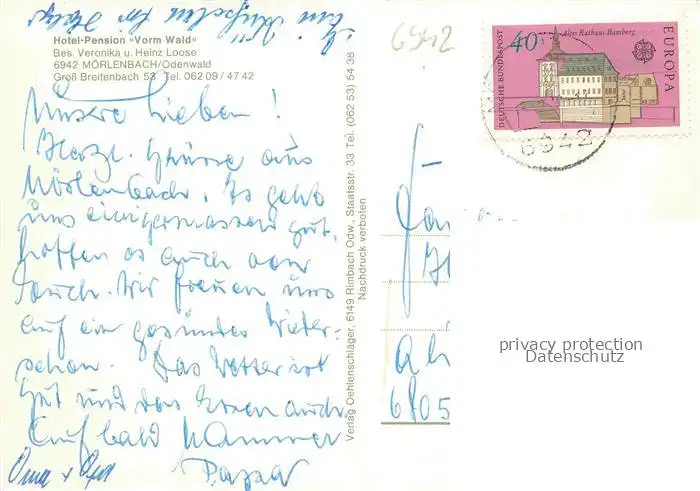 Ein Küsschen für
Hotel-Pension »Vorm Wald«
Bes. Veronika u. Heinz Loose
6942 MÖRLENBACH/Odenwald
Groß Breitenbach 53 Tel. 062 09 / 47 42
Unsere Lieben!
Herzl. Grüsse aus
Mörlenbach. Es geht
uns einigermassen gut,
hoffen es auch von
Euch. Wir freuen uns
auf ein gesundes Wieder-
sehen. Das Wetter ist
gut und das Essen auch.
Auf bald Mamma
Papa
Oma + Opa
Verlag Oehlenschläger, 6149 Rimbach Odw, Staatsstr. 33 Tel. (062 53) 54 38
Nachdruck verboten
6942
DEUTSCHE BUNDESPOST
40
Altes Rathaus Bamberg
EUROPA
6942
Fa
6805
privacy protection
Datenschutz